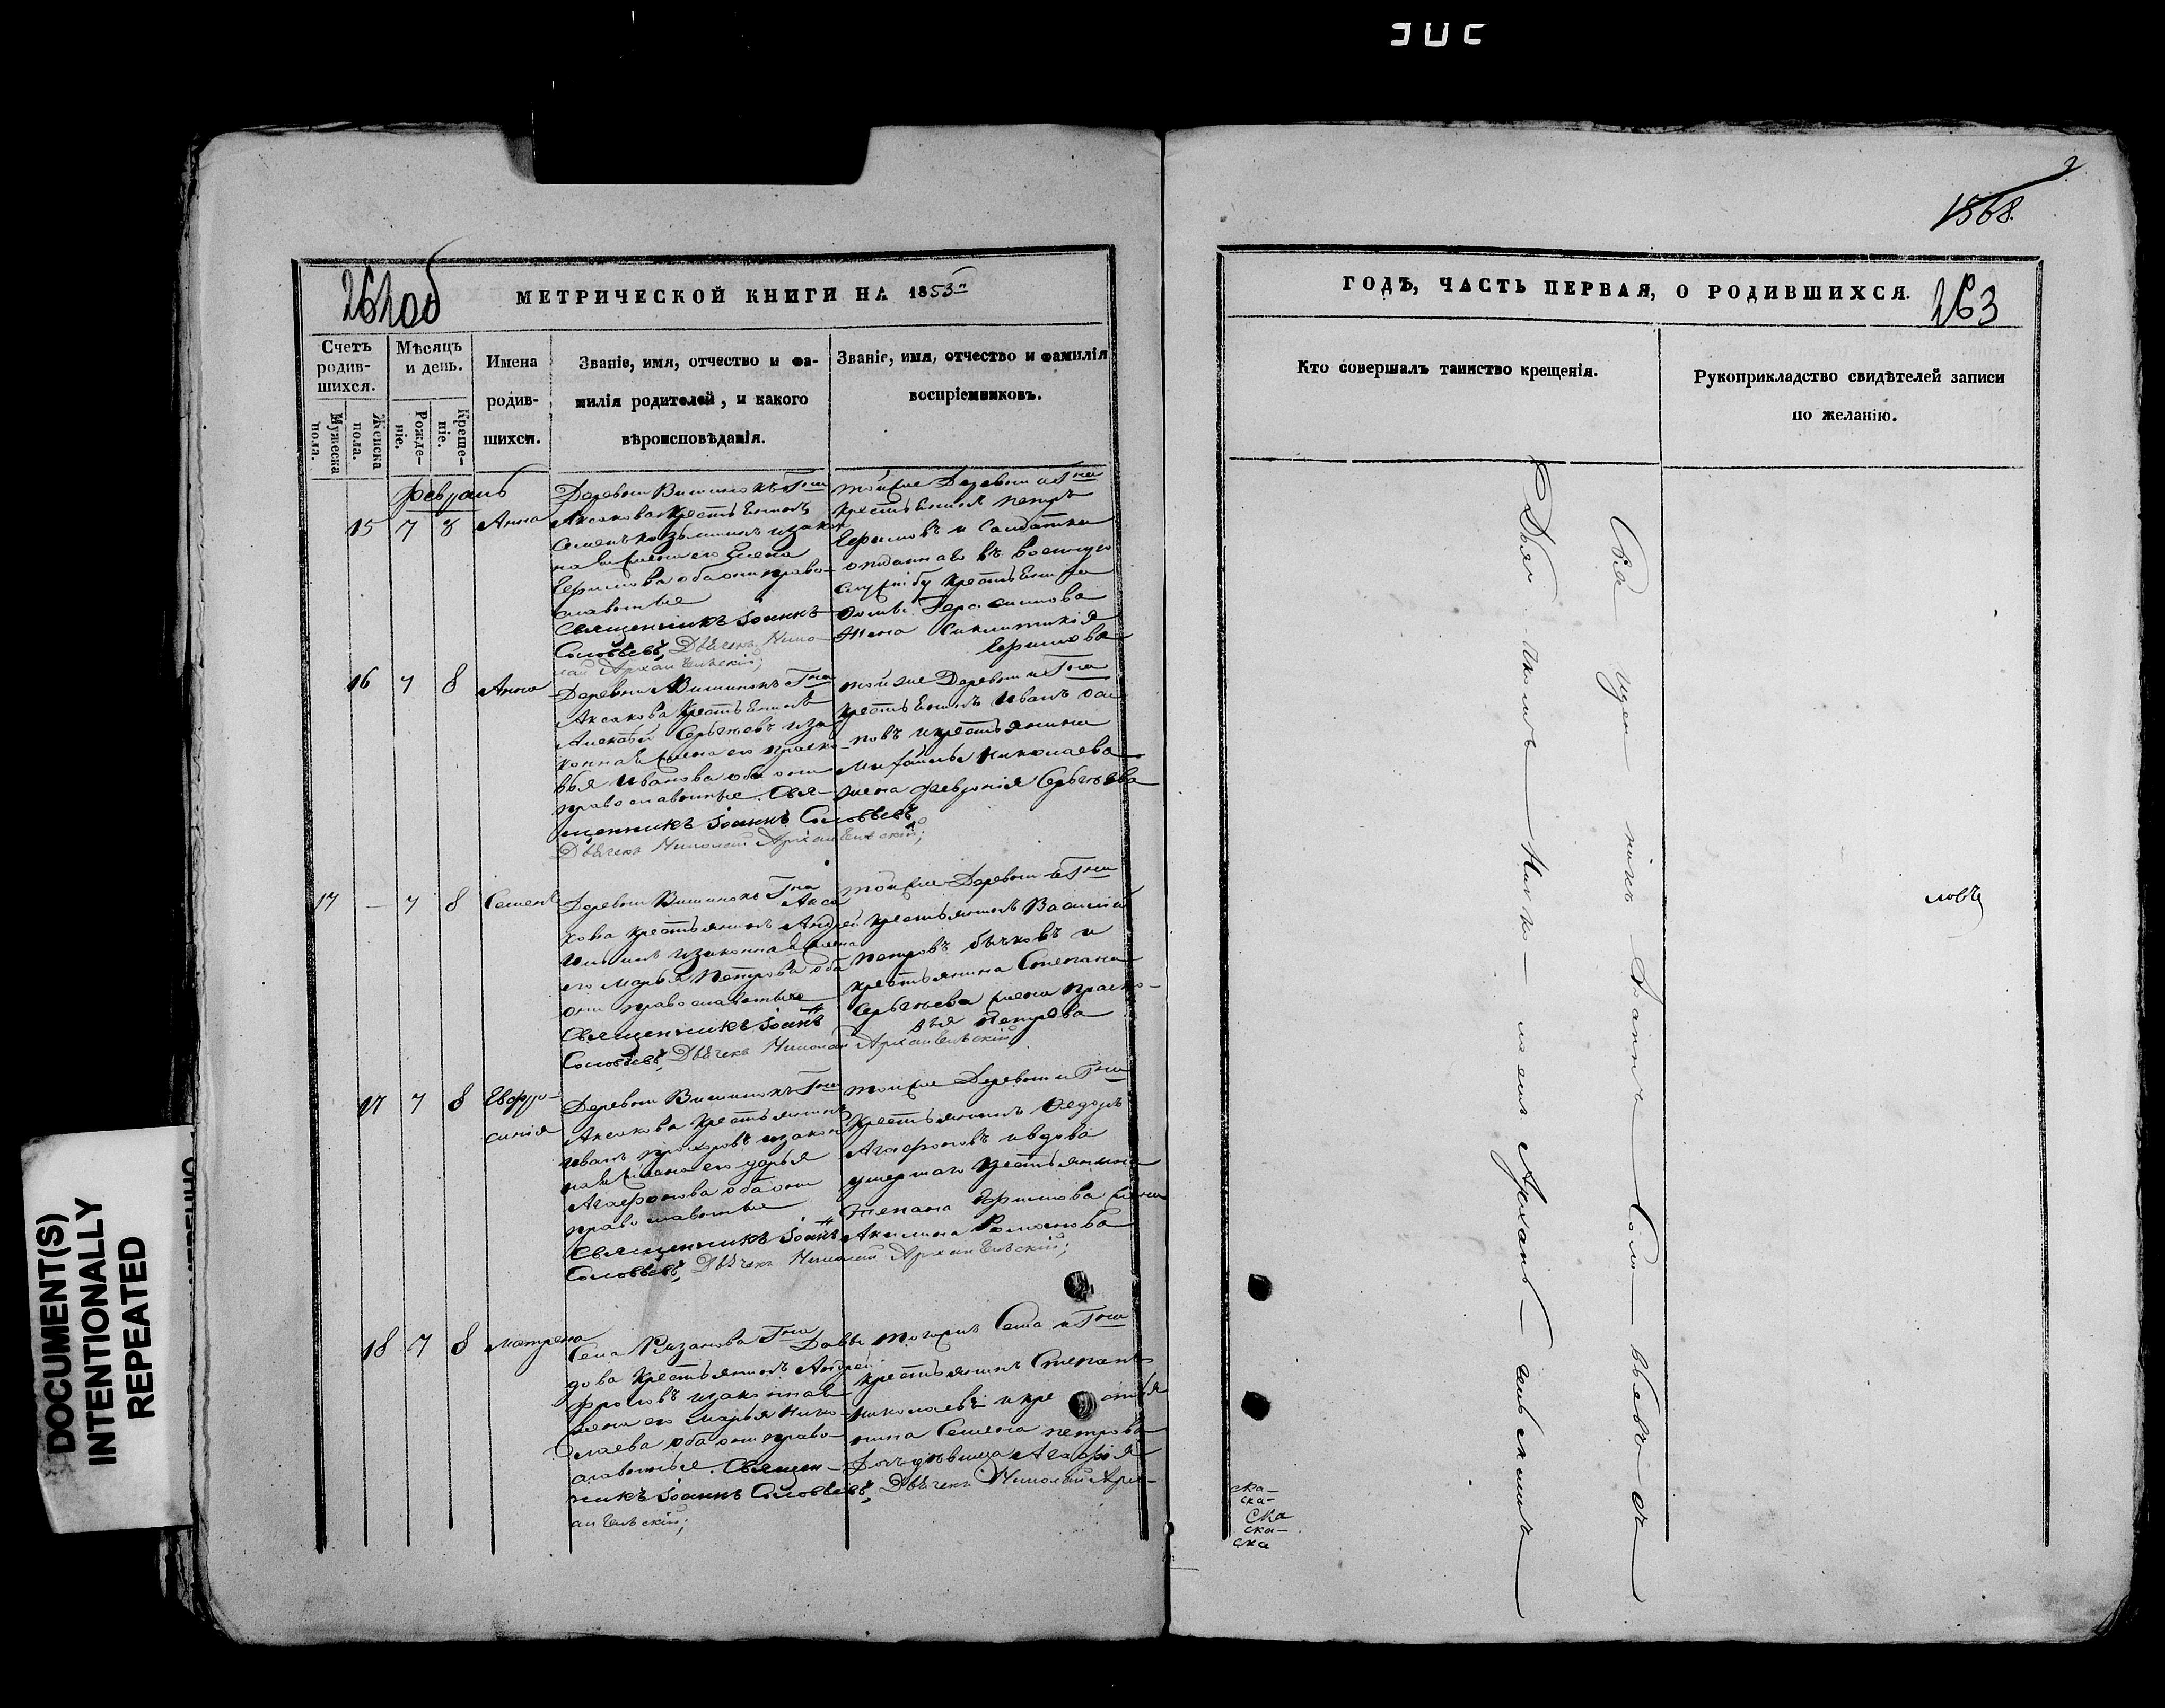 1868.
262 об
МЕТРИЧЕСКОЙ КНИГИ НА 1853й
Счетъ родив-шихся.
Мѣсяцъ и день.
Имена родив-шихся.
Званіе, имя, отчество и фа-
милія родителей, и какого
вѣроисповѣданія.
Званіе, имя, отчество и фамилія
воспріемниковъ.
Мужеска пола.
Женска пола.
Рожде-ніе.
Креще-ніе.
Февраль
15 7 8 Анна
Деревни Вишинокъ Гна
Аксакова Крестьянинъ
Семенъ Козьминъ изакон
ная жена его Елена
Ефимова оба они право-
славные
Священникъ Іоаннъ
Соловьевъ, Дьячекъ Нико-
лай Архангельскій;
тойже Деревни и Гна
Крестьянинъ Петръ
Ефимовъ и Солдатка
отданнаго въ военную
службу Крестьянина
Герасимова
жена
Ефимова
16 7 8 Анна
Деревни Вишинокъ Гна
Аксакова Крестьянинъ
Алексей Сергѣевъ иза
конная жена его Праско-
вья Иванова оба они
православные. Свя-
щенникъ Іоаннъ Соловьевъ
Дьячекъ Николай Архангельскій;
тойже Деревни и Гна
Крестьянинъ Иванъ Оси
повъ икрестьянина
Михайлы Николаева
жена Феврония Сергѣева
17 — 7 8 Семенъ
Деревни Вишинокъ Гна Акса
кова крестьянинъ Андрей
Ильинъ изаконная жена
его Марья Петрова оба
они православные
Священникъ Іоаннъ
Соловьевъ, Дьячекъ Николай Архангельскій
тойже Деревни и Гна
крестьянинъ Василій
Петровъ Бычковъ и
крестьянина Степана
Сергѣева жена Праско-
вья Петрова
17 7 8 Евфро-
синія
Деревни Вишинокъ Гна
Аксакова Крестьянинъ
Иванъ Прохоровъ изакон
ная жена его Дарья
Агафонова оба они
православные
Священникъ Іоаннъ
Соловьевъ, Дьячекъ Николай Архангельскій;
тойже Деревни и Гна
Крестьянинъ Федоръ
Агафоновъ ивдова
умершаго Крестьянина
Степана Ефимова жена
Акилина Романова
18 7 8 Матрена
Села Рязанова Гна Давы
дова Крестьянинъ Андрей
Фроловъ изаконная
жена его Марья Нико-
лаева оба они право-
славные. Священ-
никъ Іоаннъ Соловьевъ, Дьячекъ Николай Арх-
ангельскій;
тогожъ Села и Гна
крестьянинъ Степанъ
Николаевъ икре стья
нина Семена Петрова
дочь дѣвица Агафія
ГОДѢ, ЧАСТЬ ПЕРВАЯ, О РОДИВШИХСЯ.
263
Кто совершалъ таинство крещенія.
Рукоприкладство свидѣтелей записи
по желанію.
Свя щен никъ Іоаннъ Соло— вьевъ съ
Дьяч комъ Нико— лаемъ Арханг— ельскимъ
ловъ
ска-
ска-
Ска
ска-
ска
DOCUMENT(S)
INTENTIONALLY
REPEATED